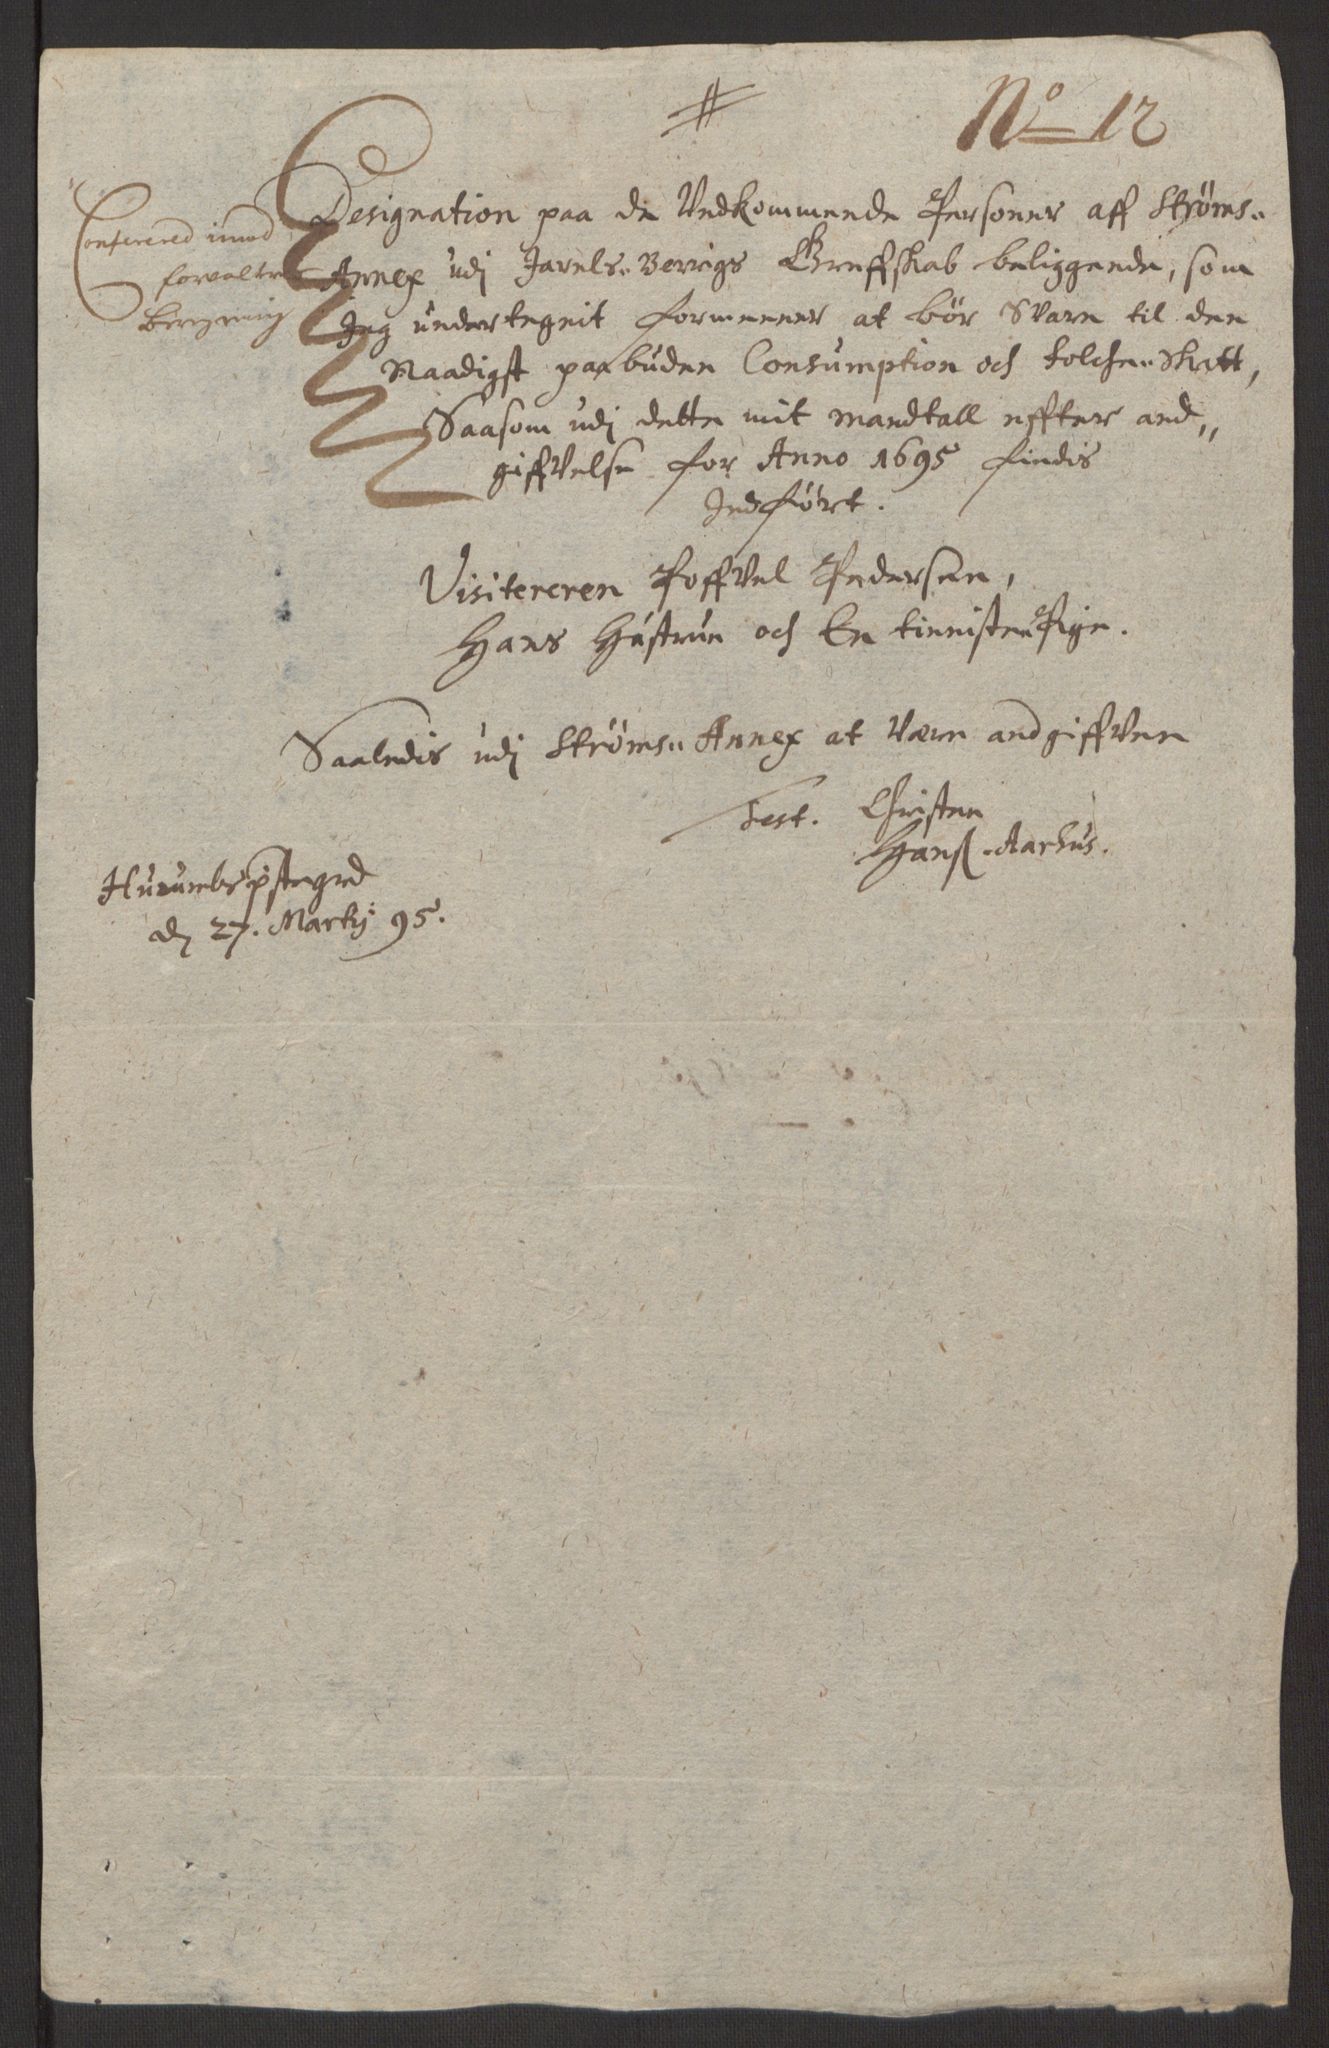 No 12
Conferered imod
forvalter
Designation paa de Vedkommende Personer aff Strøms-
Annex udj Jarels-Berrigs Greffskab beliggende, som
Jeg undertegnit formeener at bør Svare til den
Naadigst paabuden Consumption och folche-Skatt,
Saasom udj dette mit mandtall effter and„
giffvelse for Anno 1695 findis
Indført.
Visitereren Poffvel Pedersen,
Hans Hustrue och En tienniste Pige.
Saaledis udj Strøms-Annex at være andgiffven
Test. Christen
Hanß. Aarhus.
Hurumbs pstegrd
d 27. Martij 95.